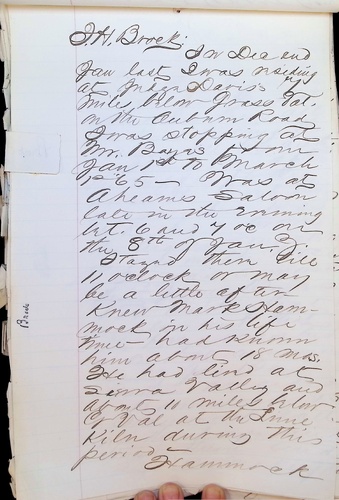 J. H. Brock;
In Dec and
Jan last I was residing
at Judge Davis's
miles below Grass Val.
on the Auburn Road
I was stopping at
Mr. from
Jan 1st to March
1865 — Was at
Ahearns Saloon
late in the evening
bt. 6 and 7 oc on
the 8th of Jan.
Stayed there till
11 oclock or may
be a little after
Knew Mark Ham-
mock in his life
time — had known
him about 18 mos.
He had lived at
Sierra Valley and
about 10 miles below
G Val at the Lime
Kiln during this
period
Hammock
Brock